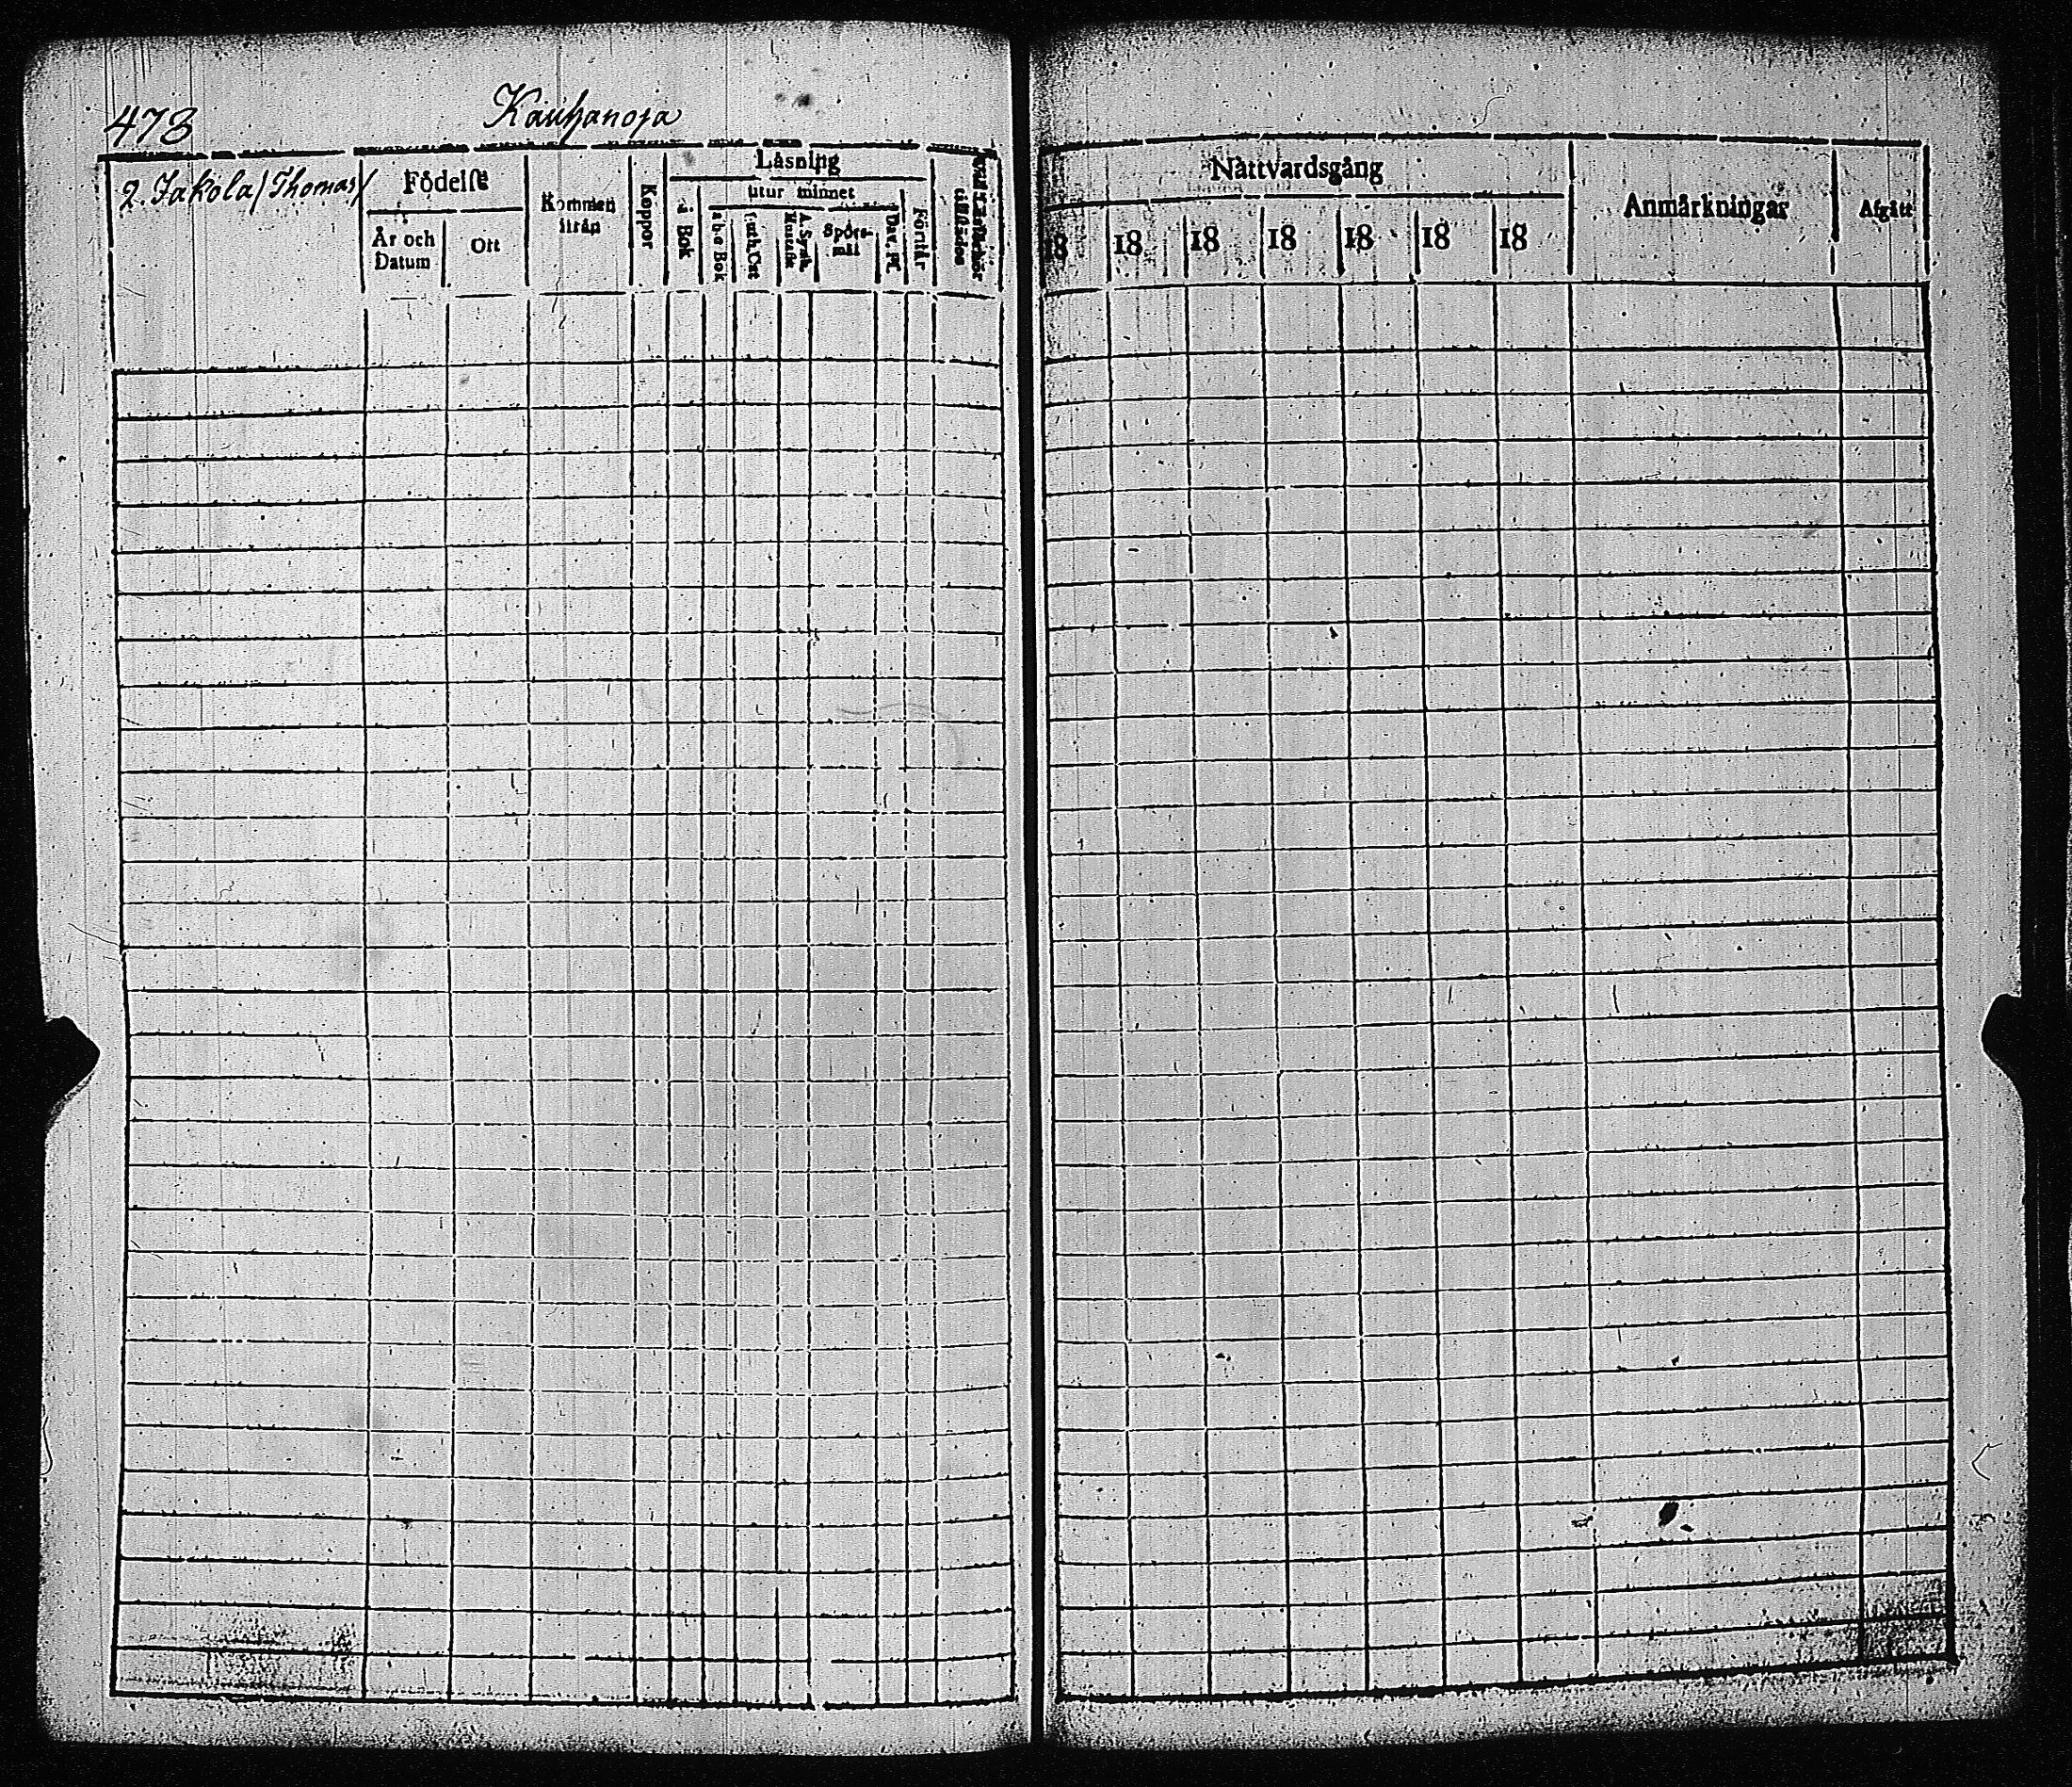 478
Kauhanoja
2. Jakola (Thomas)
Födelse
År och Datum
Ort
Kommen ifrån
Koppor
Läsning
i Bok
utur minnet
a b c Bok
Luth. Cat
A. Symb. Hustafla
Spörsmål
Dav. Ps.
Förstår
tillstädes
Nattvardsgång
18 18 18 18 18 18 18
Anmärkningar
Afgått